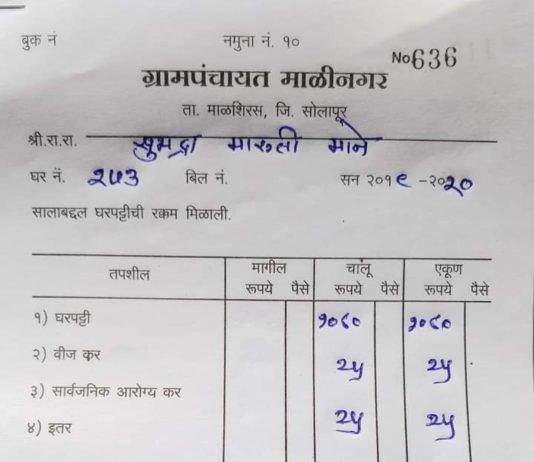 बुक नं नमुना नं. १०
No 636
ग्रामपंचायत माळीनगर
ता. माळशिरस, जि. सोलापूर
श्री.रा.रा. सुभद्रा मारुती माने
घर नं. २५३ बिल नं. सन २०१९ -२०२०
सालाबद्दल घरपट्टीची रक्कम मिळाली.
तपशील मागील चालू एकूण
रूपये पैसे रूपये पैसे रूपये पैसे
१) घरपट्टी १०८० १०८०
२) वीज कर २५ २५
३) सार्वजनिक आरोग्य कर
४) इतर २५ २५